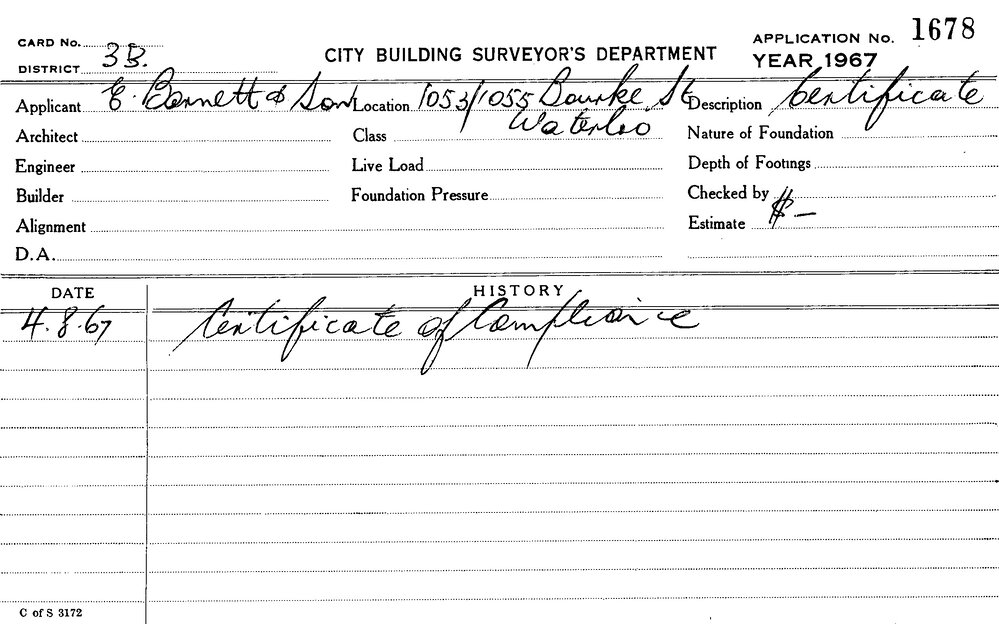 CARD No.
DISTRICT 3B.
CITY BUILDING SURVEYOR'S DEPARTMENT
APPLICATION No. 1678
YEAR 1967
Applicant E. Bennett & Son Location 1053/1055 Bourke St Description Certificate
Waterloo
Architect Class Nature of Foundation
Engineer Live Load Depth of Footings
Builder Foundation Pressure Checked by
Alignment Estimate $ —
D.A.
DATE HISTORY
4.8.67 Certificate of Compliance
C of S 3172